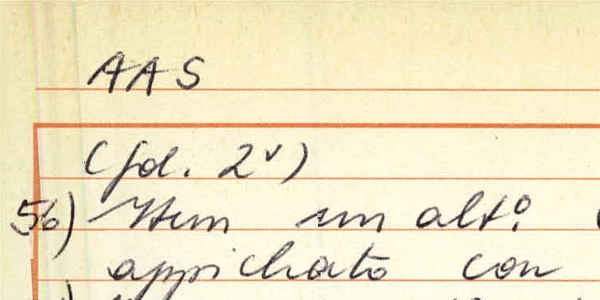 AAS
(fol. 2v)
56) Item un alt.o
appichato con